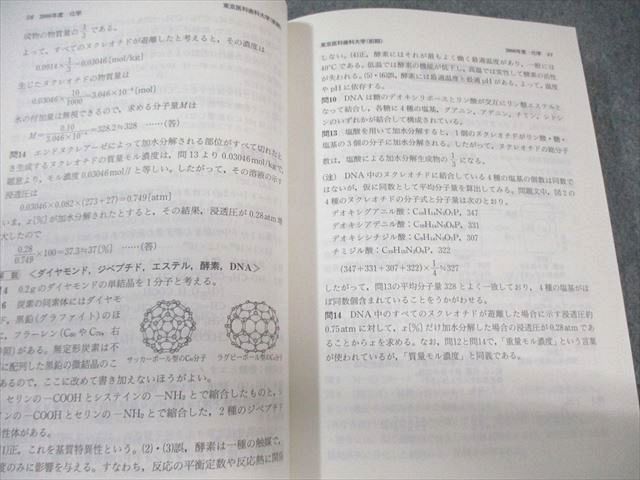 56 2006年度 化学
東京医科歯科大学(前期)
成物の物質量の1/3である。
よって，すべてのヌクレオチドが遊離したと考えると，その濃度は
0.0914×1/3=0.03046〔mol/kg〕
生じたヌクレオチドの物質量は
0.03046×10/1000=3.046×10⁻⁴〔mol〕
水の付加量は無視できるので，求める分子量Mは
M=0.10/3.046×10⁻⁴=328.2≒328 ……(答)
問14 エンドヌクレアーゼによって加水分解される部位がすべて切れたと
き生成するヌクレオチドの質量モル濃度は，問13より0.03046mol/kgで，
題意より，モル濃度0.03046mol/lと等しい。したがって，その溶液の示す
浸透圧は
0.03046×0.082×(273+27)=0.749〔atm〕
いま，x〔%〕が加水分解されたとすると，その結果，浸透圧が0.28atm増
大したので
0.28/0.749×100=37.3≒37〔%〕 ……(答)
解説 〈ダイヤモンド，ジペプチド，エステル，酵素，DNA〉
4 0.2gのダイヤモンドの単結晶を1分子と考える。
6 炭素の同素体にはダイヤモ
ド，黒鉛(グラファイト)のほ
，フラーレン(C₆₀やC₇₀，右
図)がある。無定形炭素は不
に配列した黒鉛の微結晶のこ
サッカーボール型のC₆₀分子
ラグビーボール型のC₇₀分子
あるので，ここに改めて書き加えないほうがよい。
セリンの−COOHとシステインの−NH₂とで縮合したものと，
インの−COOHとセリンの−NH₂とで縮合した，2種のジペプチド
性体がある。
(1)正，これを基質特異性という。(2)・(3)誤，酵素は一種の触媒で，
度のみに影響を与える。すなわち，反応の平衡定数や反応熱に関係
東京医科歯科大学(前期)
2006年度 化学 57
しない。(4)正，酵素にはそれが最もよく働く最適温度があり，一般に35〜
40℃である。低温では酵素の機能が低下し，高温では変性して酵素の活性
が失われる。(5)・(6)誤，酵素には最適温度と最適pHがある。よって，温度
やpHに依存する。
問10 DNAは糖のデオキシリボースとリン酸が交互にリン酸エステルと
なって結合し，各糖に4種の塩基，グアニン，アデニン，チミン，シトシ
ンのいずれかが結合して構成されている。
問13 塩酸を用いて加水分解すると，1個のヌクレオチドがリン酸・糖・
塩基の3個の分子に加水分解される。したがって，ヌクレオチドの総分子
数は，塩酸による加水分解生成物の1/3になる。
(注) DNA中のヌクレオチドに結合している4種の塩基の個数は同数で
はないが，仮に同数として平均分子量を算出してみる。問題文中，図2の
4種のヌクレオチドの分子式と分子量は次のとおり。
デオキシグアニル酸：C₁₀H₁₄N₅O₇P，347
デオキシアデニル酸：C₁₀H₁₄N₅O₆P，331
デオキシシチジル酸：C₉H₁₄N₃O₇P，307
チミジル酸：C₁₀H₁₅N₂O₈P，322
(347+331+307+322)×1/4≒327
したがって，問13の平均分子量328とよく一致しており，4種の塩基がほ
ぼ同数個含まれていることをうかがわせる。
問14 DNA中のすべてのヌクレオチドが遊離した場合に示す浸透圧約
0.75atmに対して，x〔%〕だけ加水分解した場合の浸透圧が0.28atmであ
ることからxを求める。なお，問12と問14で，「重量モル濃度」という言葉
が使われているが，「質量モル濃度」と同義である。